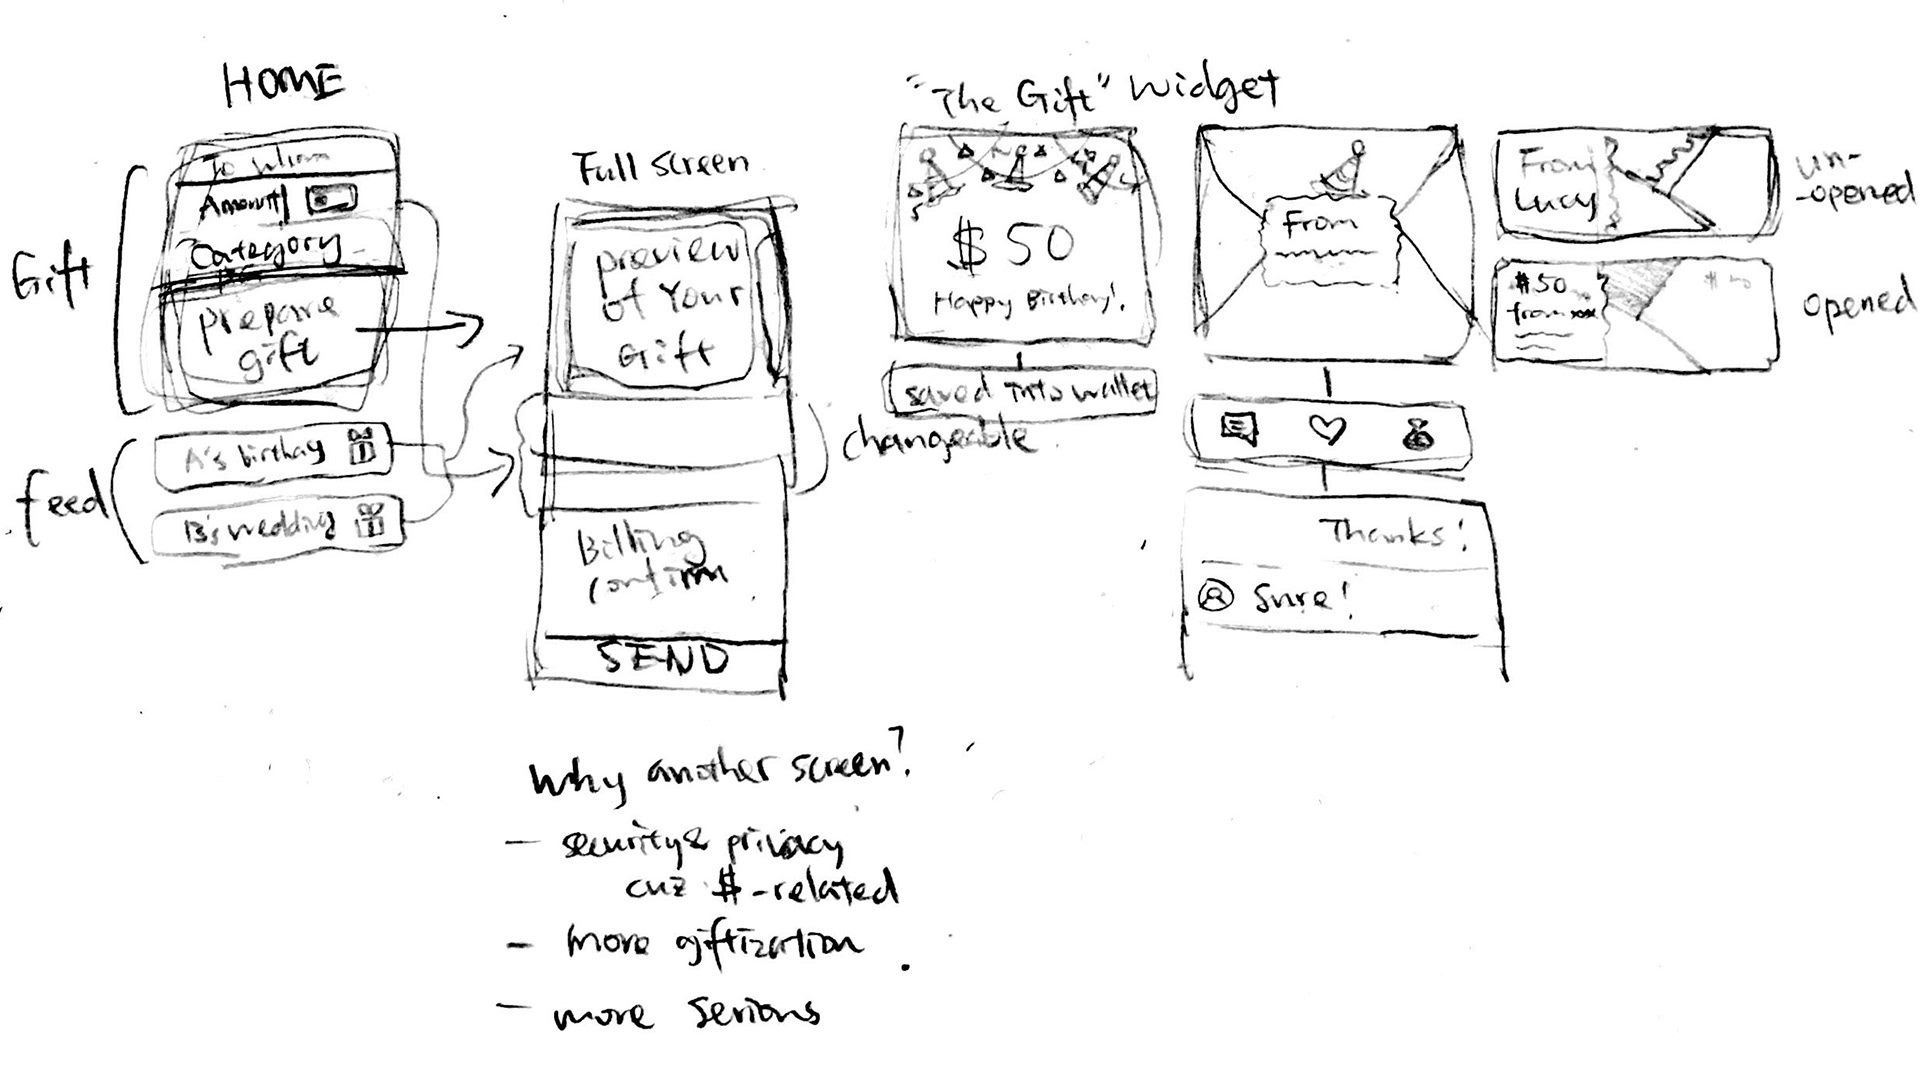 HOME
Gift
To whom
Amount
Category
prepare
gift
feed
A's birthday
B's wedding
Full screen
preview
of Your
Gift
changeable
Billing
confirm
SEND
"The Gift" widget
$50
Happy Birthday!
saved into wallet
From
From
Lucy
un-
-opened
$50
from xxx
opened
Thanks!
Sure!
why another screen?
- security & privacy
cuz $-related
- more giftization
- more serious